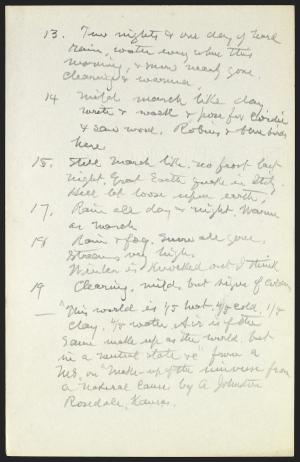 13. Two nights & one day of hard
rain, water every where this
morning, & snow nearly gone.
Clearing & warmer.
14 Mild march like day,
write & walk & pose for
& saw wood. Robins & blue birds
here
15. Still March like. no frost last
night. Great Earth quake in Italy.
Hell let loose upon earth,
17. Rain all day & night. Warm
as March
18 Rain & fog. Snow all gone.
Streams very high.
Winter is knocked out I think
19 Clearing, mild, but signs of colder
— "This world is 1/5 heat. 4/5 cold, 1/5
clay, 4/5 water. Air is of the
same make up as the world, but
in a neutral state &c" from a
MS, on "Make-up of the universe from
a natural cause by A Johnston
Rosedale, Kansas.